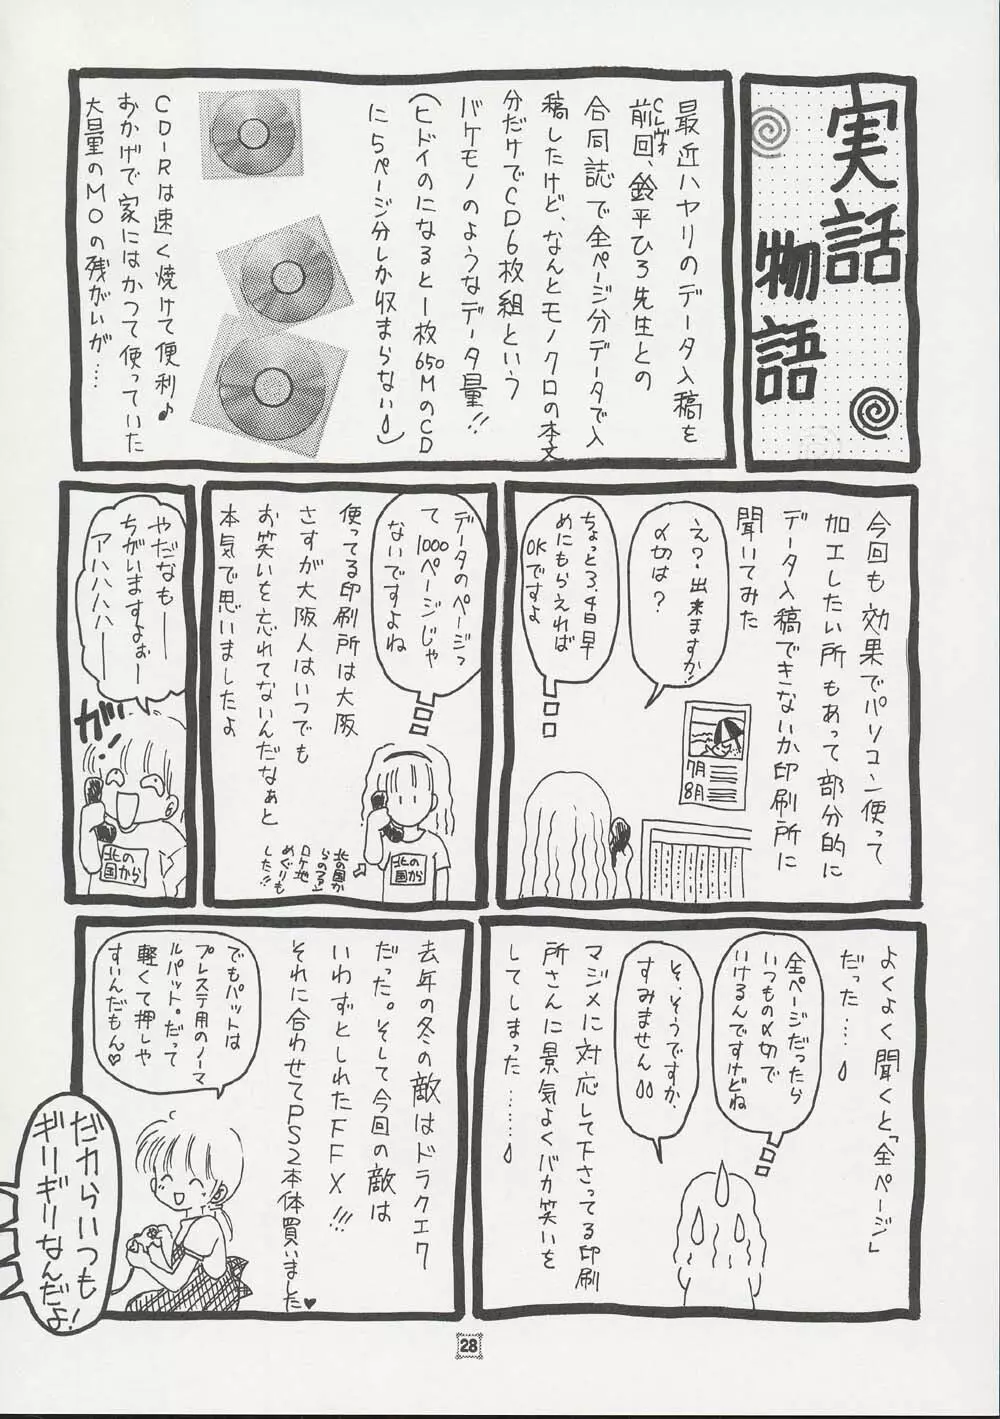 実話
物語
最近ハヤリのデータ入稿を
前回、鈴平ひろ先生との
CLレヴォ
合同誌で全ページ分データで入
稿したけど、なんとモノクロの本文
分だけでCD6枚組という
バケモノのようなデータ量!!
(ヒドイのになると一枚650MのCD
に5ページ分しか収まらない)
CD-Rは速く焼けて便利♪
おかげで家にはかつて使っていた
大量のMOの残がいが…
今回も効果でパソコン使って
加工したい所もあって部分的に
データ入稿できないか印刷所に
聞いてみた
え?出来ますか!
〆切は?
ちょっと3、4日早
めにもらえれば
OKですよ
7月
8月
データのページっ
て1000ページじゃ
ないですよね
使ってる印刷所は大阪
さすが大阪人はいつでも
お笑いを忘れてないんだなぁと
本気で思いましたよ
北の国か
らのフる
ロケ地
めぐりも
した!!
北の
国から
やだなも──
ちがいますよぉ─
アハハハハ──
ガ!
北の
国から
よくよく聞くと「全ページ」
だった……
全ページだったら
いつもの〆切で
いけるんですけどね
そ、そうですか、
すみません
マジメに対応して下さってる印刷
所さんに景気よくバカ笑いを
してしまった………
去年の冬の敵はドラクエ7
だった。そして今回の敵は
いわずとしれたFFX!!!
それに合わせてPS2本体買いました♥
でもパットは
プレステ用のノーマ
ルパット。だって
軽くて押しや
すいんだもん♥
だからいつも
ギリギリなんだよ!
28